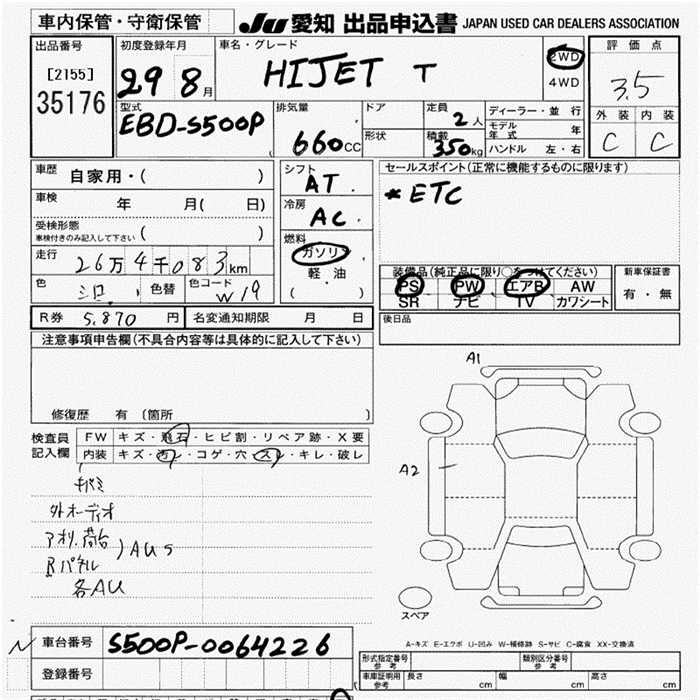 車内保管・守衛保管
JU 愛知 出品申込書 JAPAN USED CAR DEALERS ASSOCIATION
出品番号
[2155]
35176
初度登録年月
29 8 月
車名・グレード
HIJET T
2WD
4WD
評価点
3.5
外装 内装
C C
型式
EBD-S500P
排気量
660 CC
ドア
形状
定員
2 人
積載
350 kg
ディーラー・並行
モデル年式 年
ハンドル 左・右
車歴 自家用・( )
車検 年 月( 日)
受検形態
車検付きのみ記入して下さい ( )
走行 26万4千083 km
色 シロ 色替 色コード W19
シフト
AT
冷房
AC
燃料
ガソリン
軽・油
( )
セールスポイント(正常に機能するものに限ります)
*ETC
装備品(純正品に限り○をつけてください)
PS PW エアB AW
SR ナビ TV カワシート
新車保証書
有・無
R券 5,870 円 名変通知期限 月 日
後日品
注意事項申告欄(不具合内容等は具体的に記入して下さい)
修復歴 有 〔箇所 〕
検査員
記入欄
FW キズ・飛石・ヒビ割・リペア跡・X要
内装 キズ・汚レ・コゲ・穴・スレ・キレ・破レ
キバミ
外オーディオ
アオリ.荷台
Rパネル
)AUS
各AU
A1
A2
スペア
A-キズ E-エクボ U-凹み W-補修跡 S-サビ C-腐食 XX-交換済
車台番号 S500P-0064226
登録番号
形式指定番号
参考
類別区分番号
参考
車庫証明用
参考
長さ cm 幅 cm 高さ cm